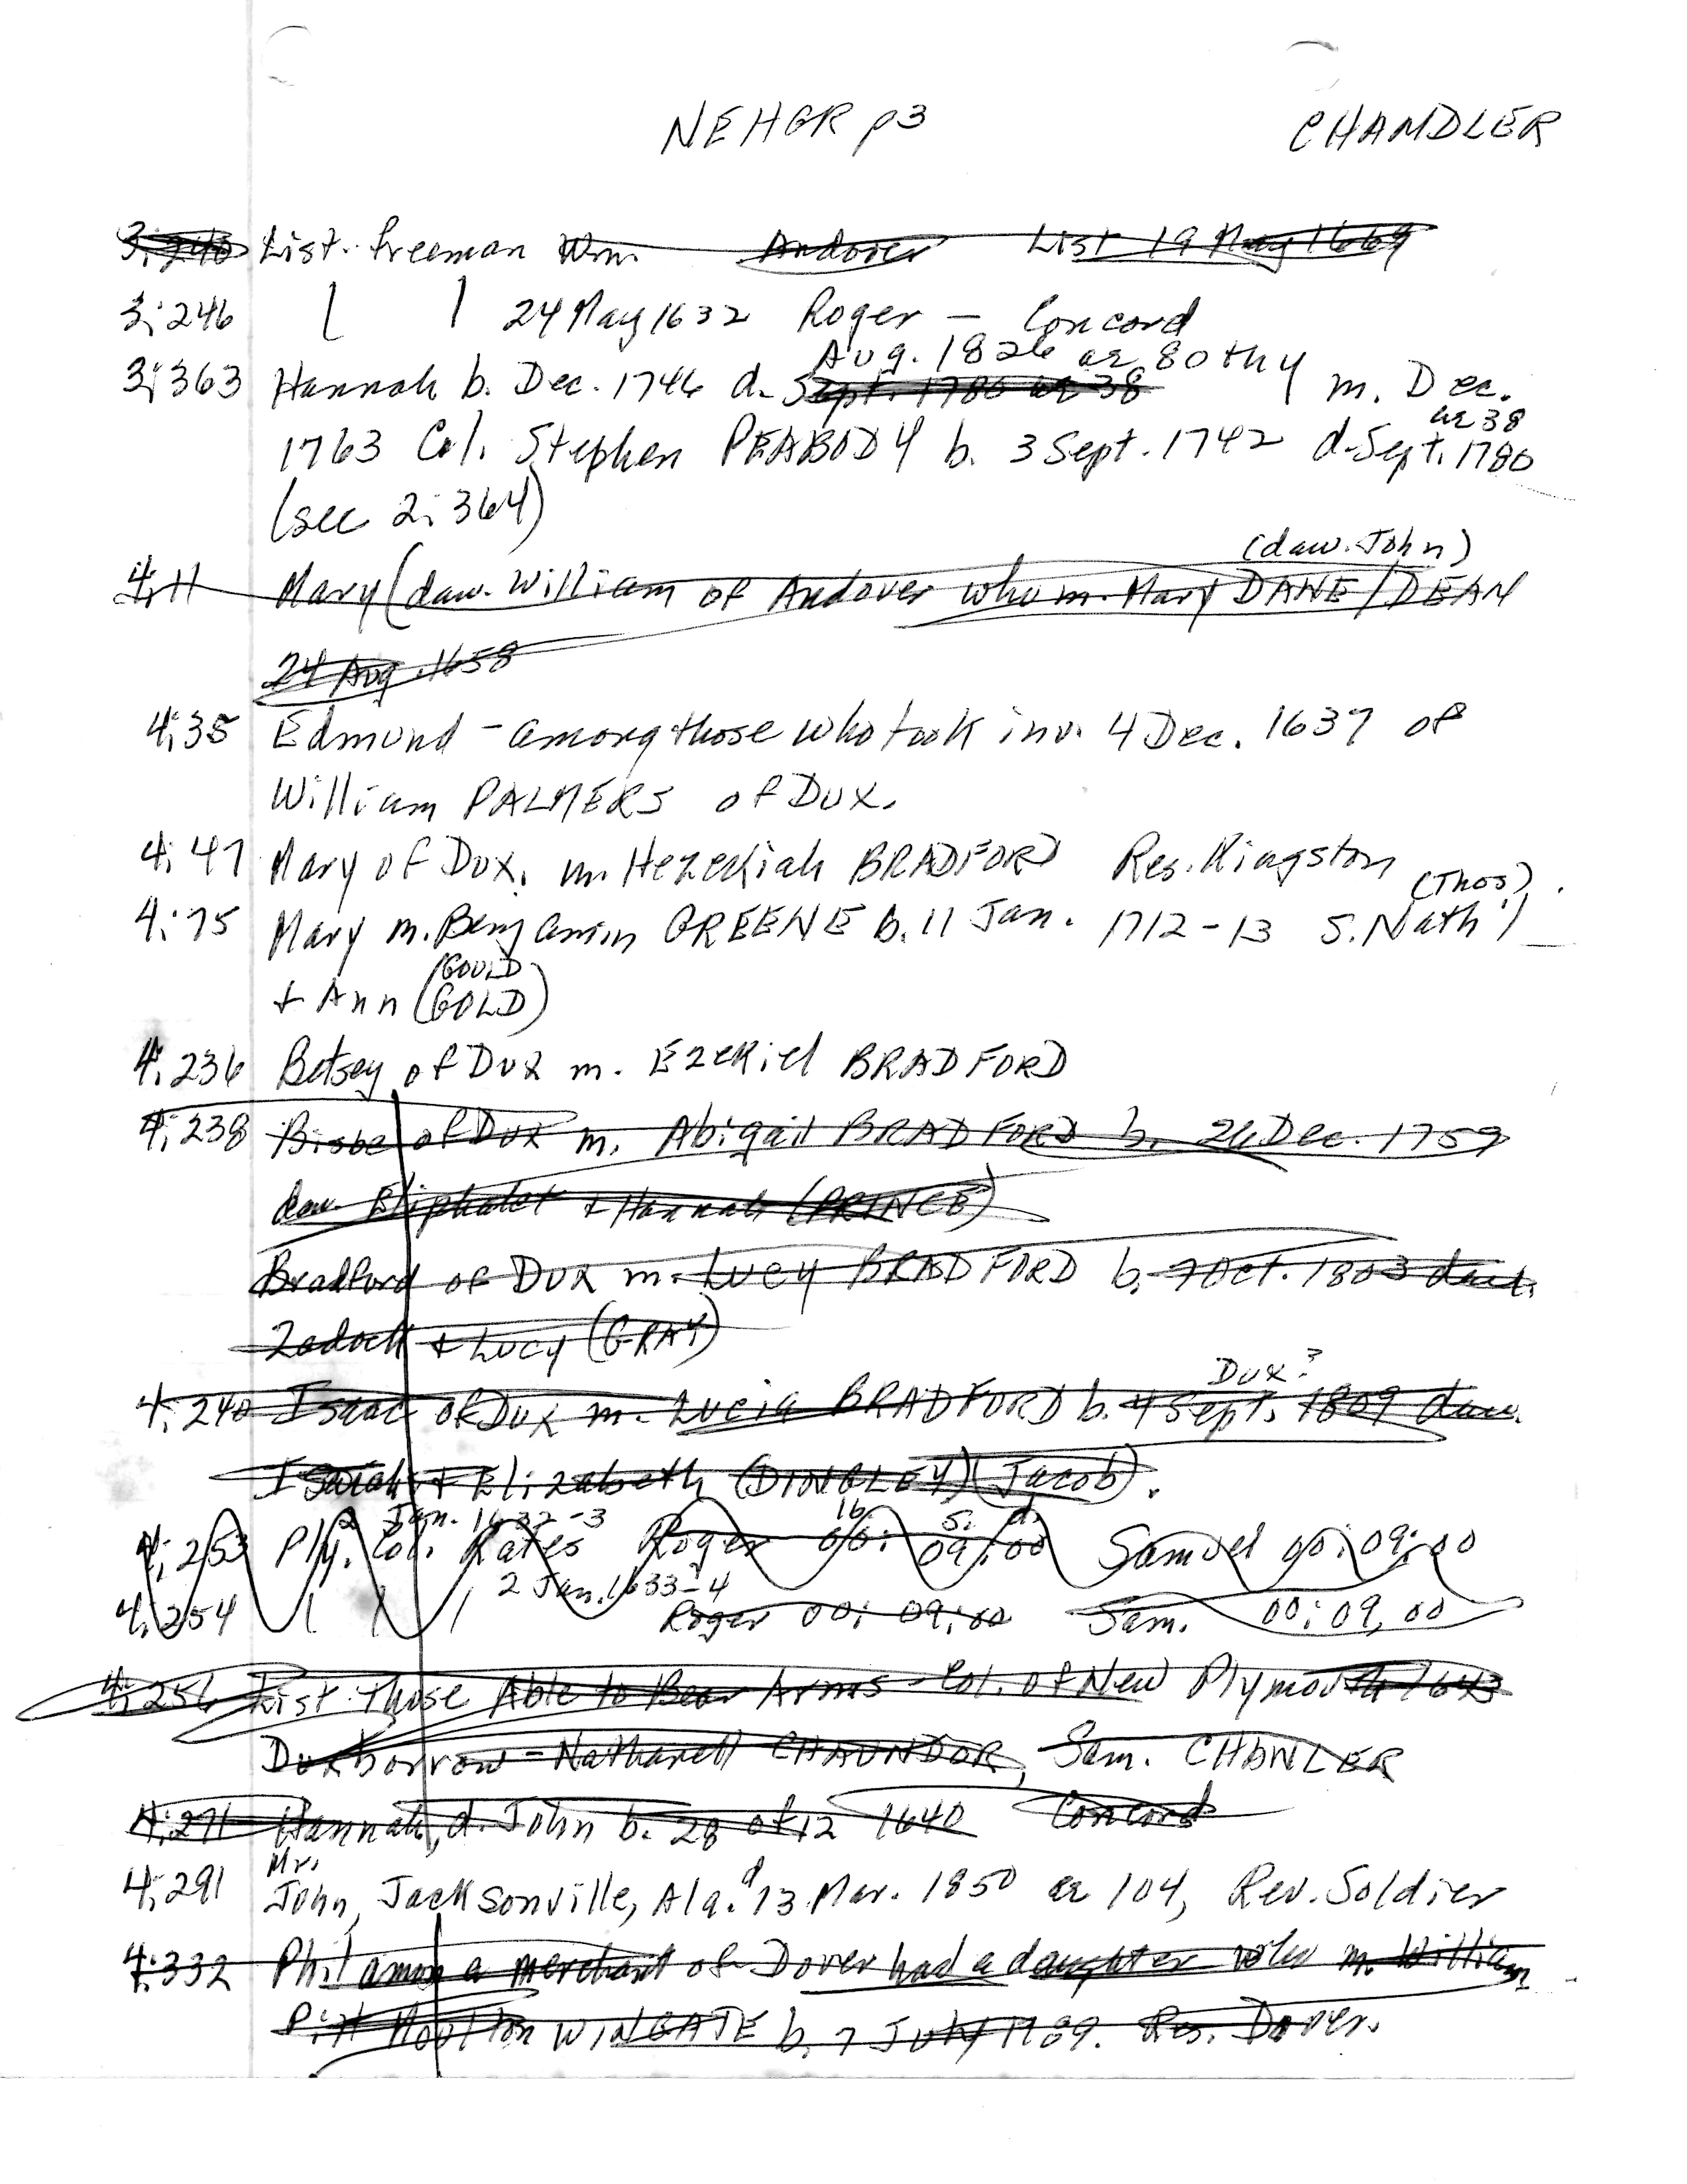 NEHGR p3 CHANDLER
3:240 List. Freeman Wm. Andover List 19 May 1669
3:246 24 May 1632 Roger – Concord
Aug. 1826 ae 80th y
3:363 Hannah b. Dec. 1746 d. Sept. 1780 ae 38 m. Dec.
ae 38
1763 Col. Stephen PEABODY b. 3 Sept. 1742 d. Sept. 1780
(see 2:364)
(daw. John)
4:11 Mary (daw. William of Andover who m. Mary DANE/DEAN
24 Aug. 1658
4:35 Edmund – among those who took inv. 4 Dec. 1637 of
William PALMERS of Dux.
4:47 Mary of Dux. m. Hezekiah BRADFORD Res. Kingston
(Thos)
4:75 Mary m. Benjamin GREENE b. 11 Jan. 1712-13 S. Nath'l
(GOULD
+ Ann (GOLD)
4:236 Betsey of Dux m. Ezekiel BRADFORD
4:238 Bisbe of Dux m. Abigail BRADFORD b. 26 Dec. 1759
daw. Eliphalet + Hannah (PRINCE)
Bradford of Dux m. Lucy BRADFORD b. 7 Oct. 1803 daw.
Zadock + Lucy (GRAY)
Dux?
4:240 Isaac of Dux m. Lucia BRADFORD b. 4 Sept. 1809 daw.
Isaiah + Elizabeth (DINGLEY) (Jacob).
2 Jan. 1632-3 lb s. d.
4:253 Ply. Col. Rates Roger 00: 09:00 Samuel 00:09:00
2 Jan. 1633-4
4:254 Roger 00:09:00 Sam. 00:09,00
4:256 List Those Able to Bear Arms – Col. of New Plymouth 1643
Duxborrow – Nathanell CHAUNDOR, Sam. CHANLER
4:271 Hannah, d. John b. 28 of 12 1640 Concord
Mr. d
4:291 John, Jacksonville, Ala. 13 Mar. 1850 ae 104, Rev. Soldier
4:332 Philamon a merchant of Dover had a daughter who m. William
Pitt Moulton WINGATE b. 7 July 1789. Res. Dover.